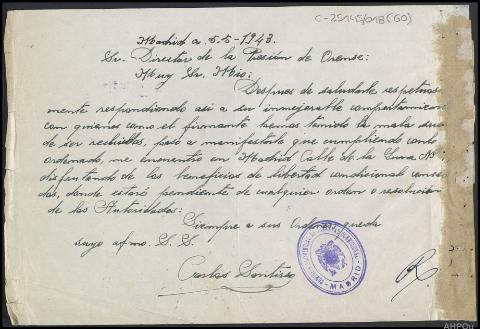 C-25145/018(60)
Madrid a 5-5-1943.
Sr. Director de la Prisión de Orense:
Muy Sr. Mio:
Despues de saludarle respetuosa
mente respondiendo asi a su inmejorable comportamiento
con quienes como el firmante hemos tenido la mala suerte
de ser recluidos, paso a manifestarle que cumpliendo con lo
ordenado, me encuentro en Madrid Calle de la Luna
disfrutando de los beneficios de libertad condicional concedi
das, donde estaré pendiente de cualquier orden o resolucion
de las Autoridades:
Siempre a sus Ordenes queda
suyo afmo. S. S.
Carlos
MADRID
R.
AHPOu